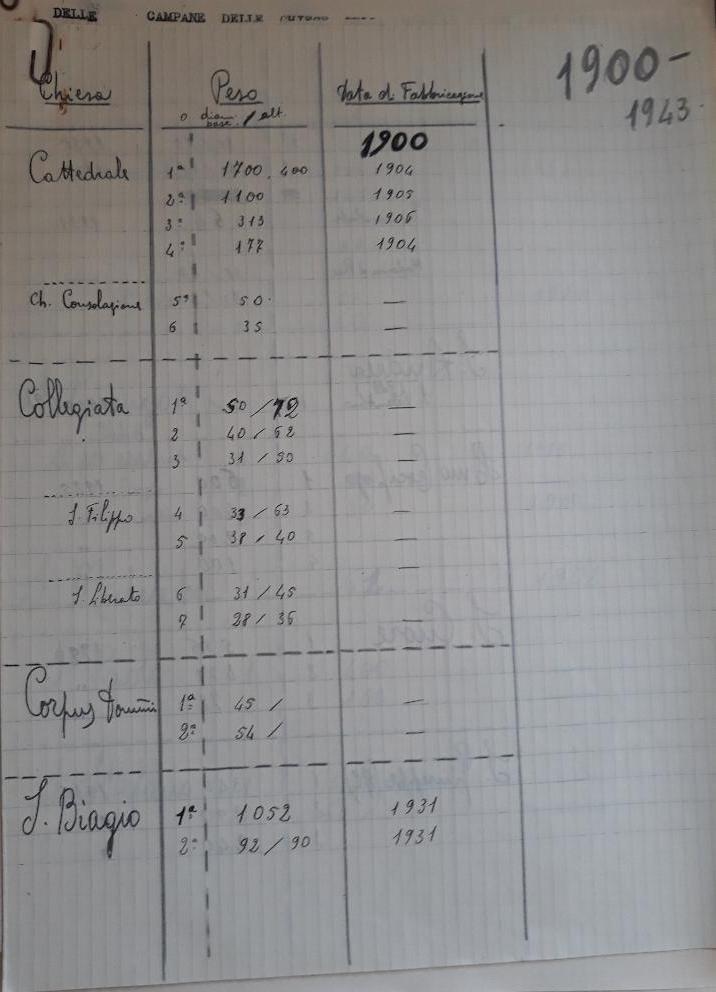 DELLE CAMPANE DELLE
1900-
1943.
Chiesa Peso Data di Fabbricazione
o diam. base. / alt.
1900
Cattedrale 1ª 1700.400 1904
2ª 1100 1905
3ª 313 1906
4ª 177 1904
Ch. Consolazione 5ª 50. —
6 35 —
Collegiata 1ª 50 / 72 —
2 40 / 62 —
3 31 / 50 —
S. Filippo 4 33 / 63 —
5 38 / 40 —
—
S. Liberato 6 31 / 45
7 28 / 36 —
Corpus Domini 1ª 45 / —
2ª 54 / —
S. Biagio 1ª 1052 1931
2ª 92 / 90 1931